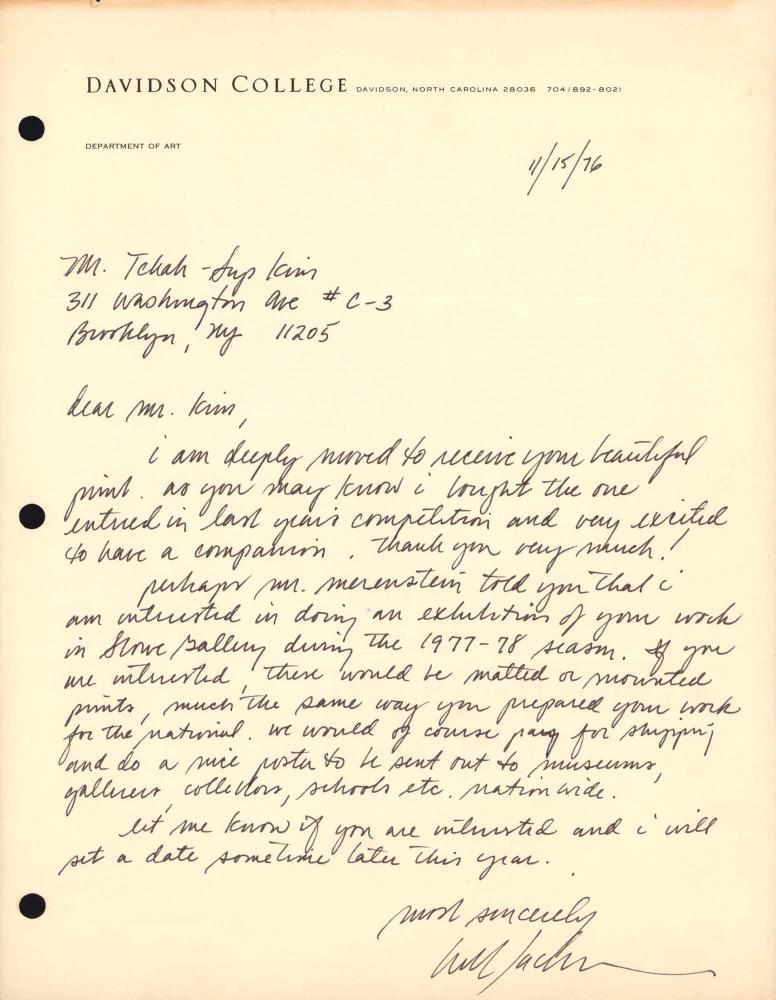 DAVIDSON COLLEGE DAVIDSON, NORTH CAROLINA 28036 704/892-8021
DEPARTMENT OF ART
11/15/76
Mr. Tchah-Sup Kim
311 Washington Ave # C-3
Brooklyn, NY 11205
dear mr. Kim,
i am deeply moved to receive your beautiful
print. as you may know i bought the one
entered in last year's competition and very excited
to have a companion. Thank you very much!
perhaps mr. merenstein told you that i
am interested in doing an exhibition of your work
in Stowe Gallery during the 1977-78 season. If you
are interested, these would be matted or mounted
prints, much the same way you prepared your work
for the national. we would of course pay for shipping
and do a nice poster to be sent out to museums,
galleries, collectors, schools etc. nationwide.
let me know if you are interested and i will
set a date sometime later this year.
most sincerely